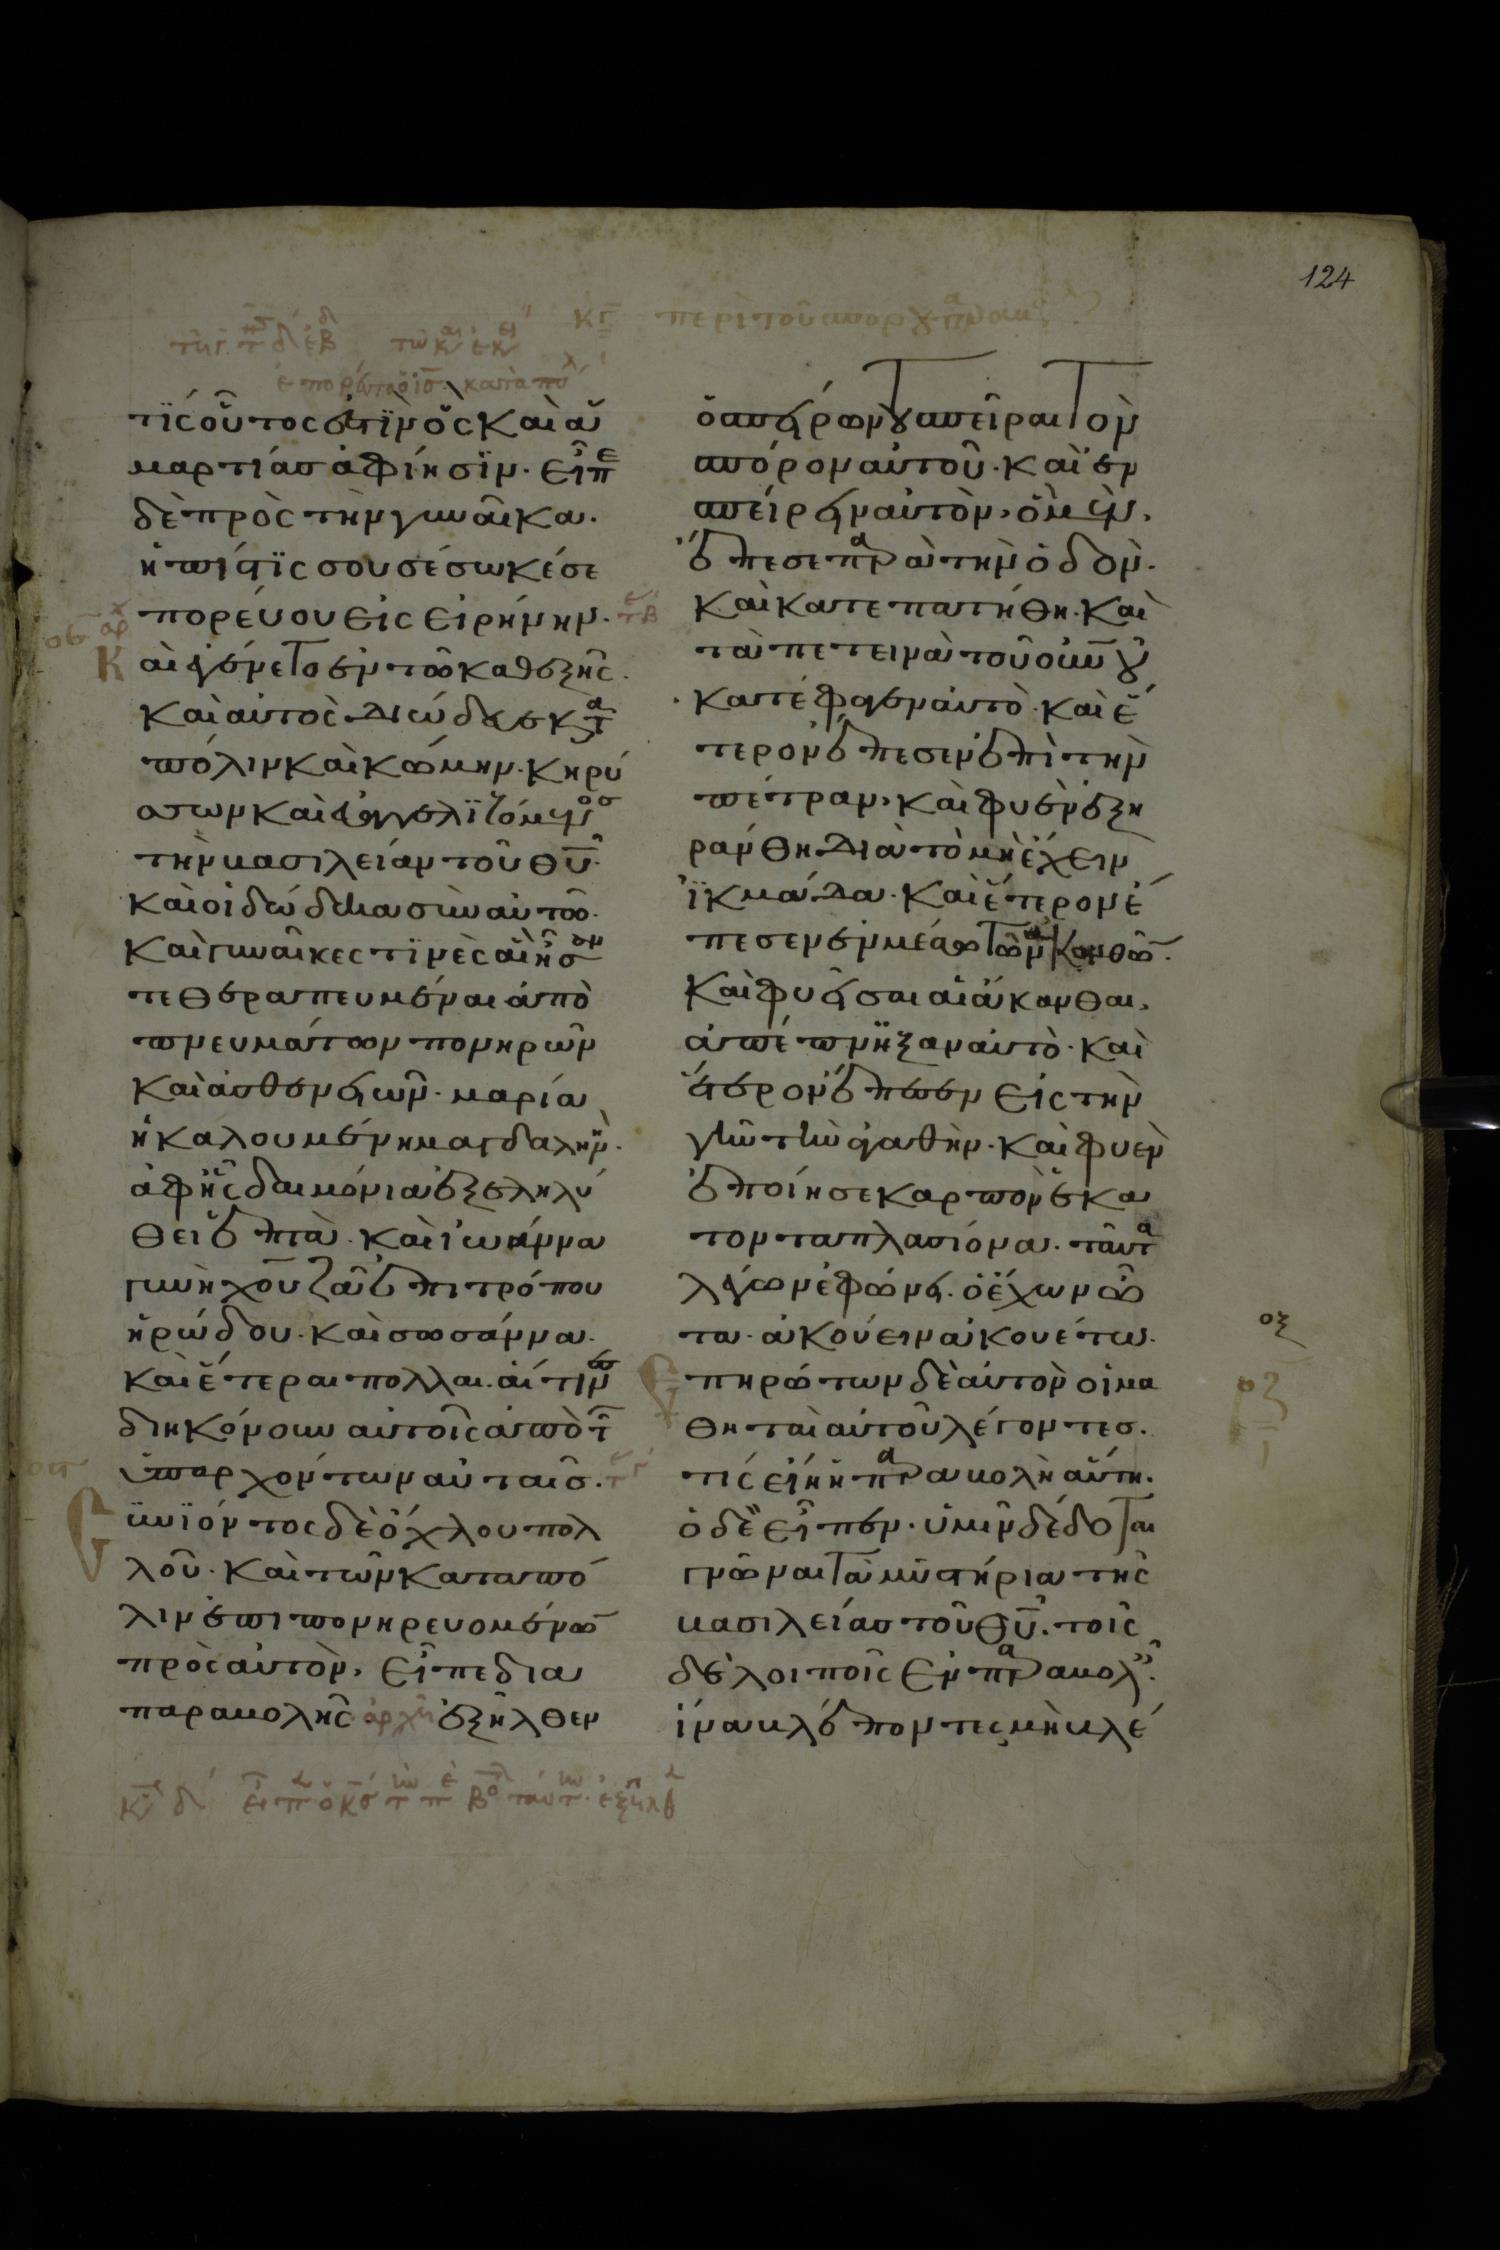 124
κγ περὶ τοῦ σπόρου
τίς οὗτος ἐστὶν ὃς καὶ ἁ
μαρτίας ἀφίησϊν. εἶπε
δὲ πρὸς τὴν γυναῖκα.
ἡ πίστϊς σου σέσωκέ σε
πορεύου εἰς εἰρήνην.
Καὶ ἐγένετο ἐν τῶ καθεξῆς.
καὶ αὐτὸς διώδευε κατὰ
πόλιν καὶ κώμην. κηρύ
σσων καὶ εὐαγγελϊζόμενος
τὴν βασιλείαν τοῦ θυ.
καὶ οἱ δώδεκα σὺν αὐτῶ.
καὶ γυναῖκες τϊνὲς αἳ ἦσαν
τεθεραπευμέναι ἀπὸ
πνευμάτων πονηρῶν
καὶ ἀσθενειῶν. μαρία
ἡ καλουμένη μαγδαληνὴ.
ἀφ ἧς δαιμόνια ἐξεληλύ
θει ἑπτὰ. καὶ ἰωάννα
γυνὴ χουζᾶ ἐπιτρόπου
ἡρώδου. καὶ σωσάννα.
καὶ ἕτεραι πολλαι. αἵτινες
διηκόνουν αὐτοῖς ἀπὸ τῶν
ὑπαρχόντων αὐταῖς.
Συνϊόντος δὲ ὄχλου πολ
λοῦ. καὶ τῶν κατα πό
λιν ἐπιπορευομένων
πρὸς αὐτὸν, εἶπε δια
παραβολῆς ἀρχὴ ἐξῆλθεν
ὁ σπείρων τοῦ σπεῖραι τὸν
σπόρον αὐτοῦ. καὶ ἐν
σπείρειν αὐτὸν, ὃ μὲν,
ἔπεσε παρὰ τὴν ὁδὸν.
καὶ κατεπατήθη. καὶ
τὰ πετεινὰ τοῦ οὐνου
κατέφαγεν αὐτὸ. καὶ ἕ
τερον ἔπεσεν ἐπὶ τὴν
πέτραν, καὶ φυὲν ἐξη
ράνθη διὰ τὸ μὴ ἔχειν
ἰκμάδα. καὶ ἕτερον ἔ
πεσεν ἐν μέσω τῶν ἀκανθῶν.
καὶ φυεῖσαι αἱ ἄκανθαι,
ἀπέπνϊξαν αὐτὸ. καὶ
ἕτερον ἔπεσεν εἰς τὴν
γῆν τὴν ἀγαθὴν. καὶ φυὲν
ἐποίησε καρπὸν ἑκα
τονταπλασίονα. ταῦτα
λέγων ἐφώνει. ὁ ἔχων ὦ
τα ἀκούειν ἀκουέτω.
Ἐπηρώτων δὲ αὐτὸν οἱ μα
θηταὶ αὐτοῦ λέγοντες.
τίς εἴη ἡ παραβολὴ αὕτη.
ὁ δὲ εἶπεν. ὑμῖν δέδοται
γνῶναι τὰ μυστήρια τῆς
βασιλείας τοῦ θυ. τοῖς
δὲ λοιποῖς ἐν παραβολαῖς.
ἵνα βλέποντες μὴ βλέ
οζ